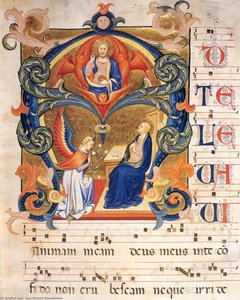 D
TE
LE
UA
UI
Animam meam deus meus inte co
fido non eru bescam neque irri de